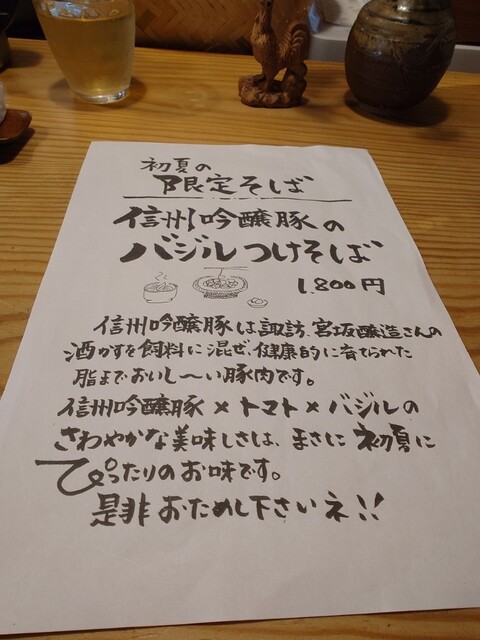 初夏の
限定そば
信州吟醸豚の
バジルつけそば
1,800円
信州吟醸豚は諏訪、宮坂醸造さんの
酒かすを飼料に混ぜ、健康的に育てられた
脂までおいし〜い豚肉です。
信州吟醸豚×トマト×バジルの
さわやかな美味しさは、まさに初夏に
ぴったりのお味です。
是非おためし下さいネ!!